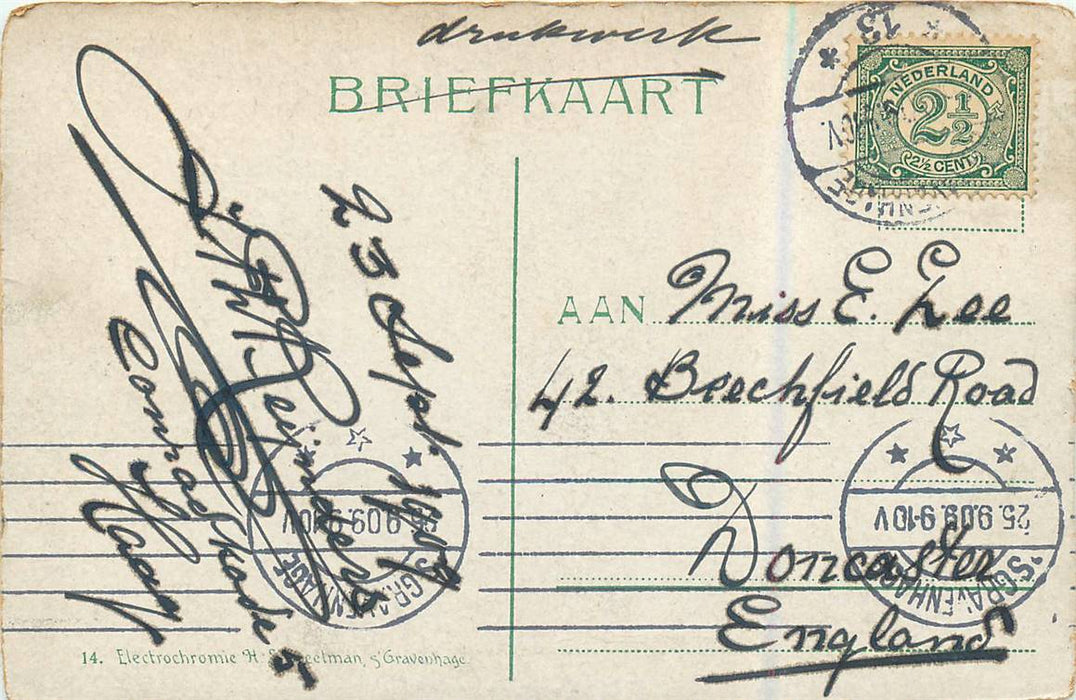 drukwerk
BRIEFKAART
NEDERLAND
2½
2½ CENT
23 Sept. 1909
Conradkade 5
Haag
AAN Miss E. Lee
42. Beechfield Road
Doncaster
England
'S GRAVENHAGE
25.9.09.9-10V
'S GRAVENHAGE
25.9.09.9-10V
14. Electrochromie 's Gravenhage